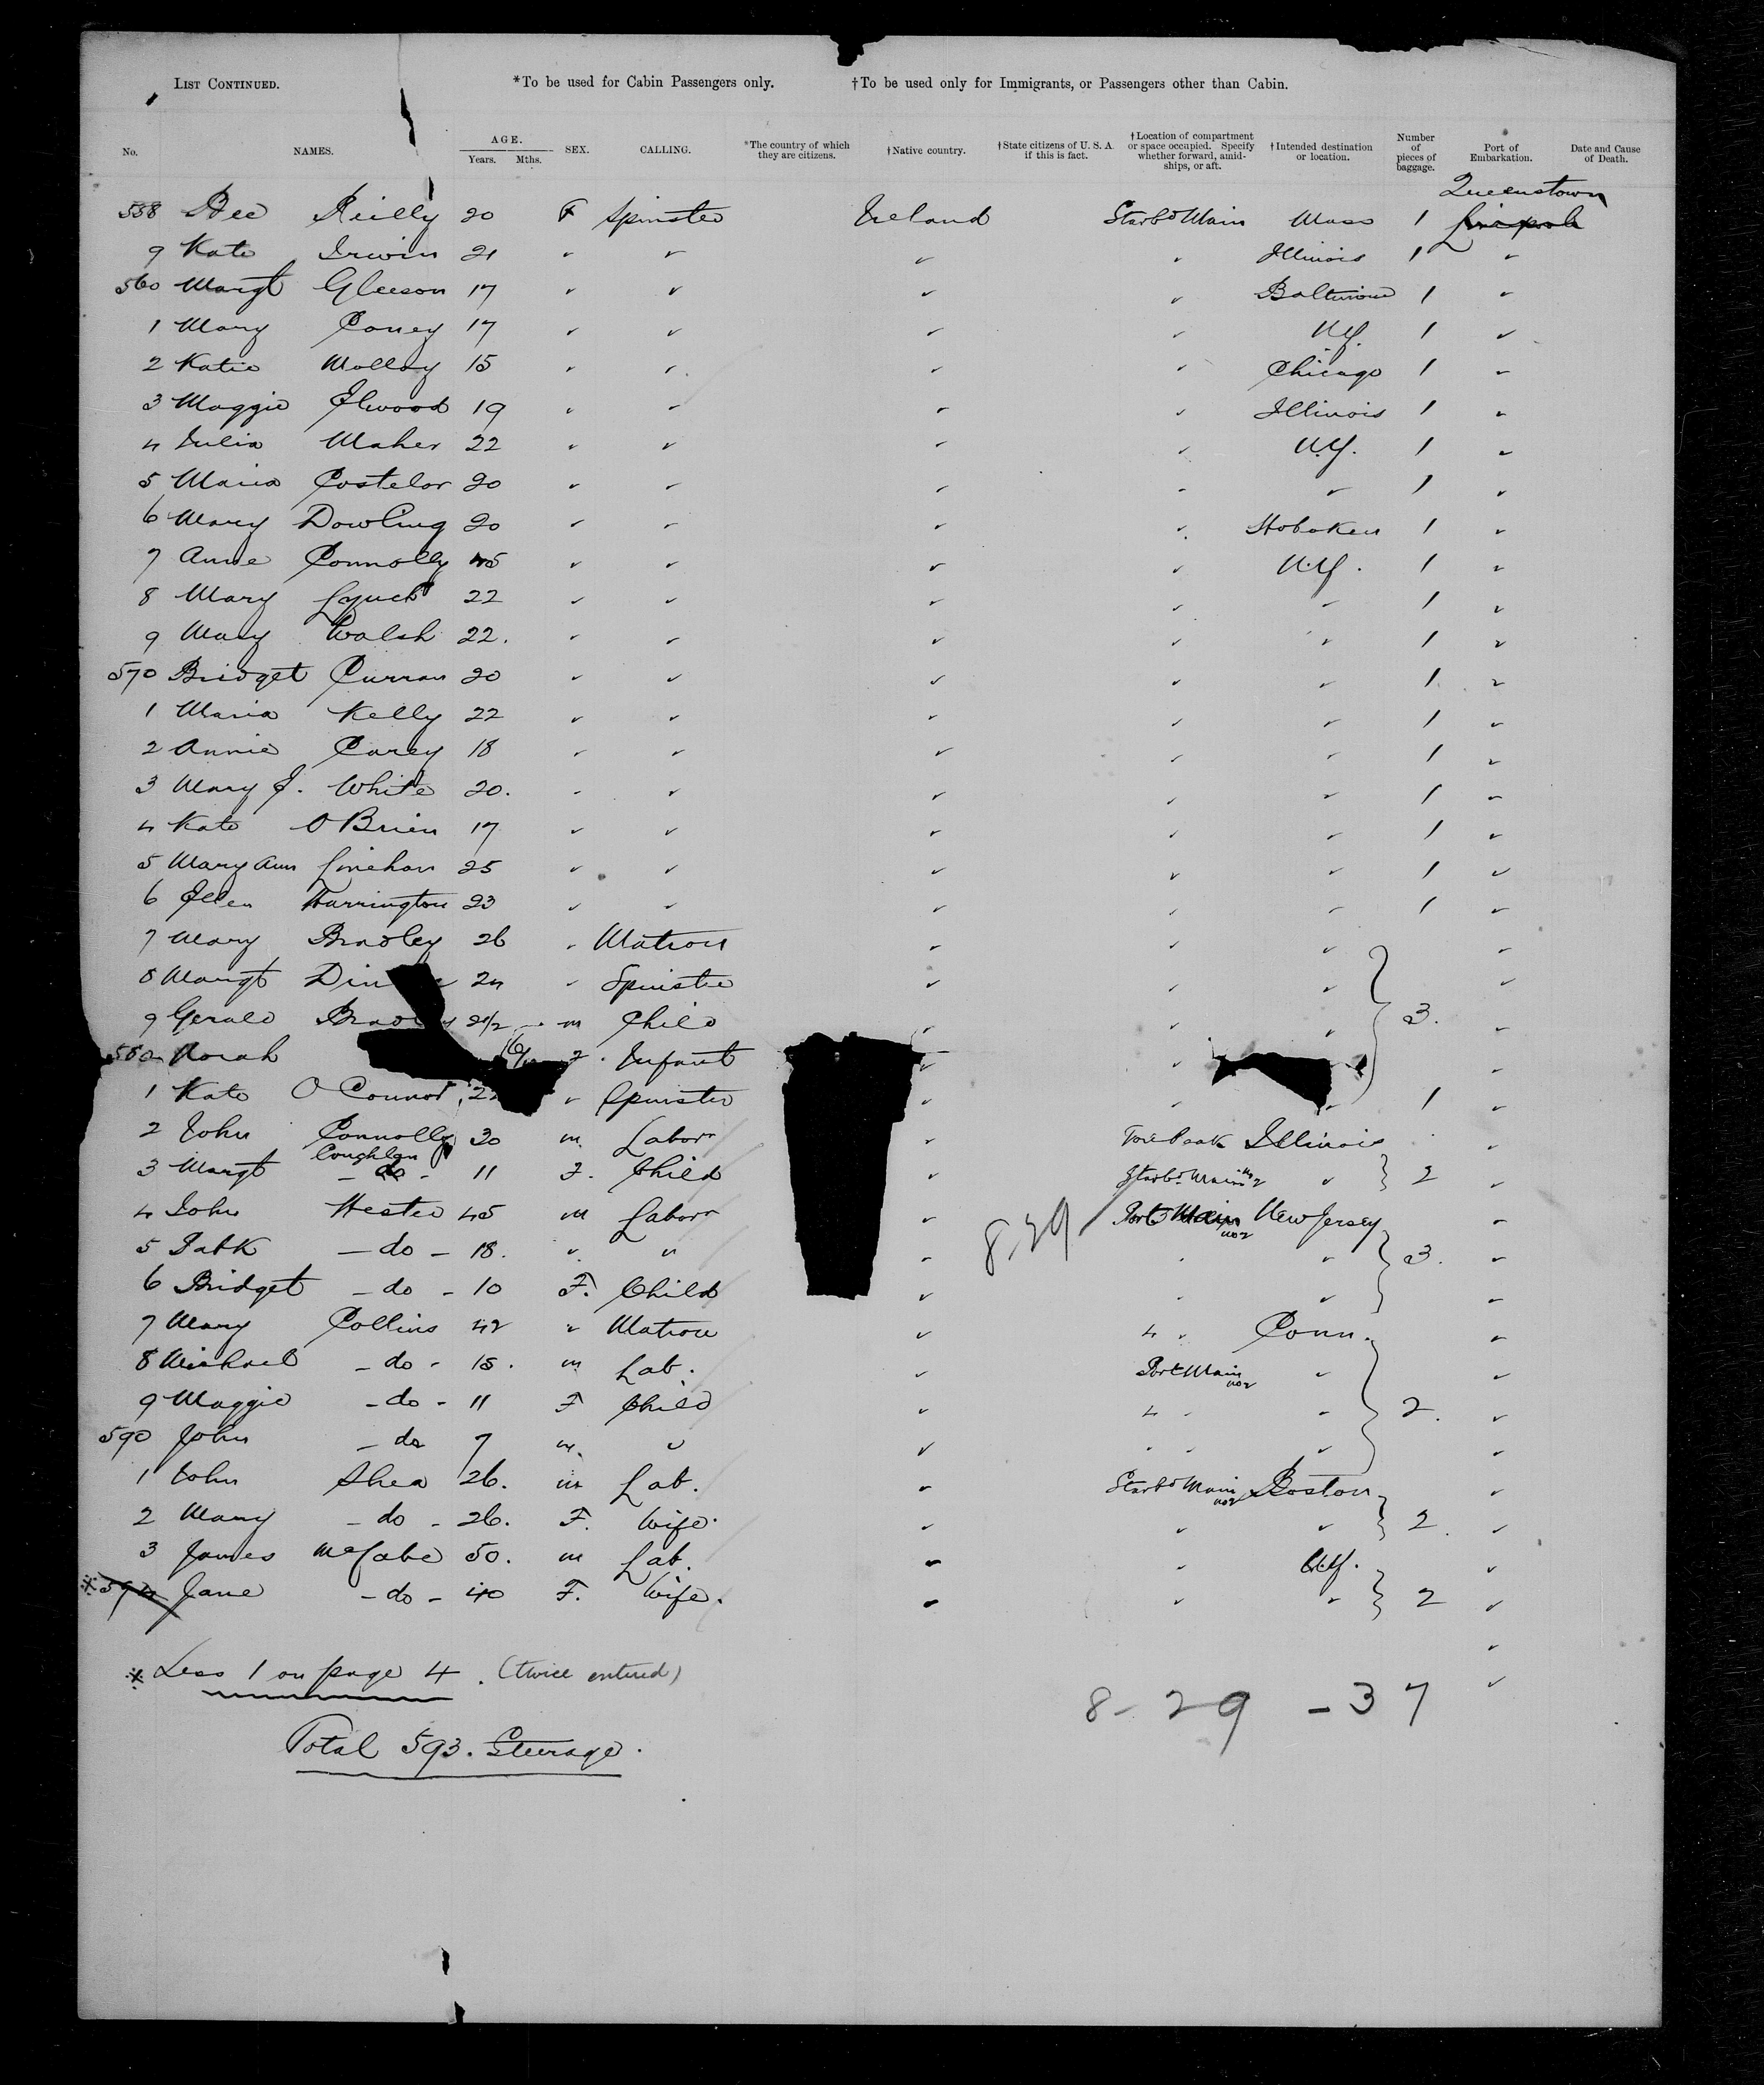 LIST CONTINUED. *To be used for Cabin Passengers only. †To be used only for Immigrants, or Passengers other than Cabin.
No. NAMES. AGE. Years. Mths. SEX. CALLING. *The country of which they are citizens. †Native country. †State citizens of U. S. A. if this is fact. †Location of compartment or space occupied. Specify whether forward, amidships, or aft. †Intended destination or location. Number of pieces of baggage. Port of Embarkation. Date and Cause of Death.
Queenstown
558 Reilly 20 F Spinster Ireland Starbd Main Mass 1
9 Kate Irwin 21 " " " " Illinois 1 "
560 Margt Gleeson 17 " " " " Baltimore 1 "
1 Mary Coney 17 " " " " N.Y. 1 "
2 Katie Molloy 15 " " " " Chicago 1 "
3 Maggie Elwood 19 " " " " Illinois 1 "
4 Julia Maher 22 " " " " N.Y. 1 "
5 Maria Costelor 20 " " " " " 1 "
6 Mary Dowling 20 " " " " Hoboken 1 "
7 Annie Connolly 45 " " " " N.Y. 1 "
8 Mary Lynch 22 " " " " " 1 "
9 Mary Walsh 22. " " " " " 1 "
570 Bridget Curran 20 " " " " " 1 "
1 Maria Kelly 22 " " " " " 1 "
2 Annie Carey 18 " " " " " 1 "
3 Mary J. White 20. " " " " " 1 "
4 Kate O Brien 17 " " " " " 1 "
5 Mary Ann Linehan 25 " " " " " 1 "
6 Ellen Harrington 23 " " " " " 1 "
7 Mary Bradley 26 " Matron " " " "
8 Margt 24 " Spinster " " " "
9 Gerald Bradley 2 1/2 m Child " " " 3. "
580 Norah Infant " " "
1 Kate O Connor " Spinster " " " 1 "
2 John Connolly 30 m. Labor " Forepeak Illinois "
Coughlan
3 Margt - do - 11 F. Child " Starbd Main no 2 " 2 "
4 John Hester 45 m Labor " 8-29 Port Main no 2 New Jersey "
5 Patk - do - 18. " " " " " 3. "
6 Bridget - do - 10 F. Child " " " "
7 Mary Collins 42 " Matron " " " Conn. "
8 Michael - do - 15. m Lab. " Port Main no 2 " "
9 Maggie - do - 11 F Child " " " " 2. "
590 John - do 7 m. " " " " " "
1 John Shea 26. m Lab. " Starbd Main no 2 Boston "
2 Mary - do - 26. F. Wife. " " " 2. "
3 James McCabe 50. m Lab. " " N.Y. "
* 594 Jane - do - 40 F. Wife. " " " 2 "
"
* Less 1 on page 4. (twice entered) "
8-29 - 37
Total 593. Steerage.